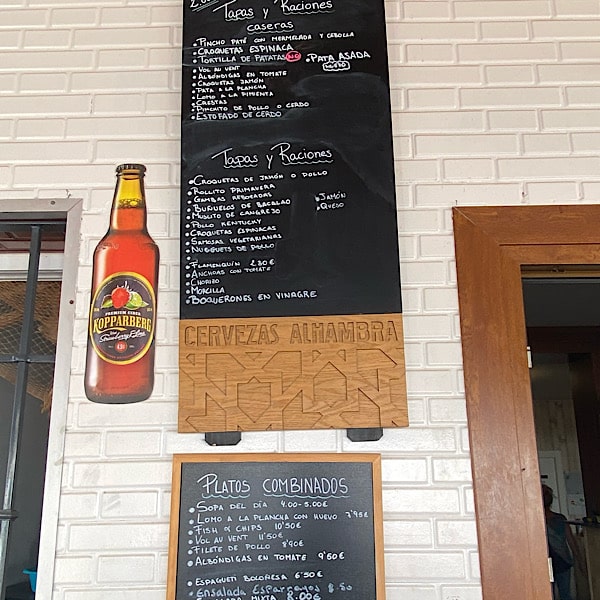 Tapas y Raciones
caseras
• Pincho paté con mermelada y cebolla
• Croquetas espinaca
• Tortilla de patatas NO • Pata asada
nuevo
• Vol au vent
• Albóndigas en tomate
• Croquetas jamón
• Pata a la plancha
• Lomo a la pimienta
• Crestas
• Pinchito de pollo o cerdo
• Estofado de cerdo
Tapas y Raciones
• Croquetas de jamón o pollo
• Rollito primavera • Jamón
• Gambas rebozadas • Queso
• Buñuelos de bacalao
• Muslito de cangrejo
• Pollo kentucky
• Croquetas espinacas
• Samosas vegetarianas
• Nuggets de pollo
• Flamenquín 2'30€
• Anchoas con tomate
• Chorizo
• Morcilla
• Boquerones en vinagre
CERVEZAS ALHAMBRA
PREMIUM CIDER
KOPPARBERG
Strawberry & Lime
Platos combinados
• Sopa del día 4.00-5.00€
• Lomo a la plancha con huevo 7'95€
• Fish & chips 10'50€
• Vol au vent 11'50€
• Filete de pollo 8'90€
• Albóndigas en tomate 9'50€
• Espagueti boloñesa 6'50€
• Ensalada Esparragos 8.50
mixta 8.00€